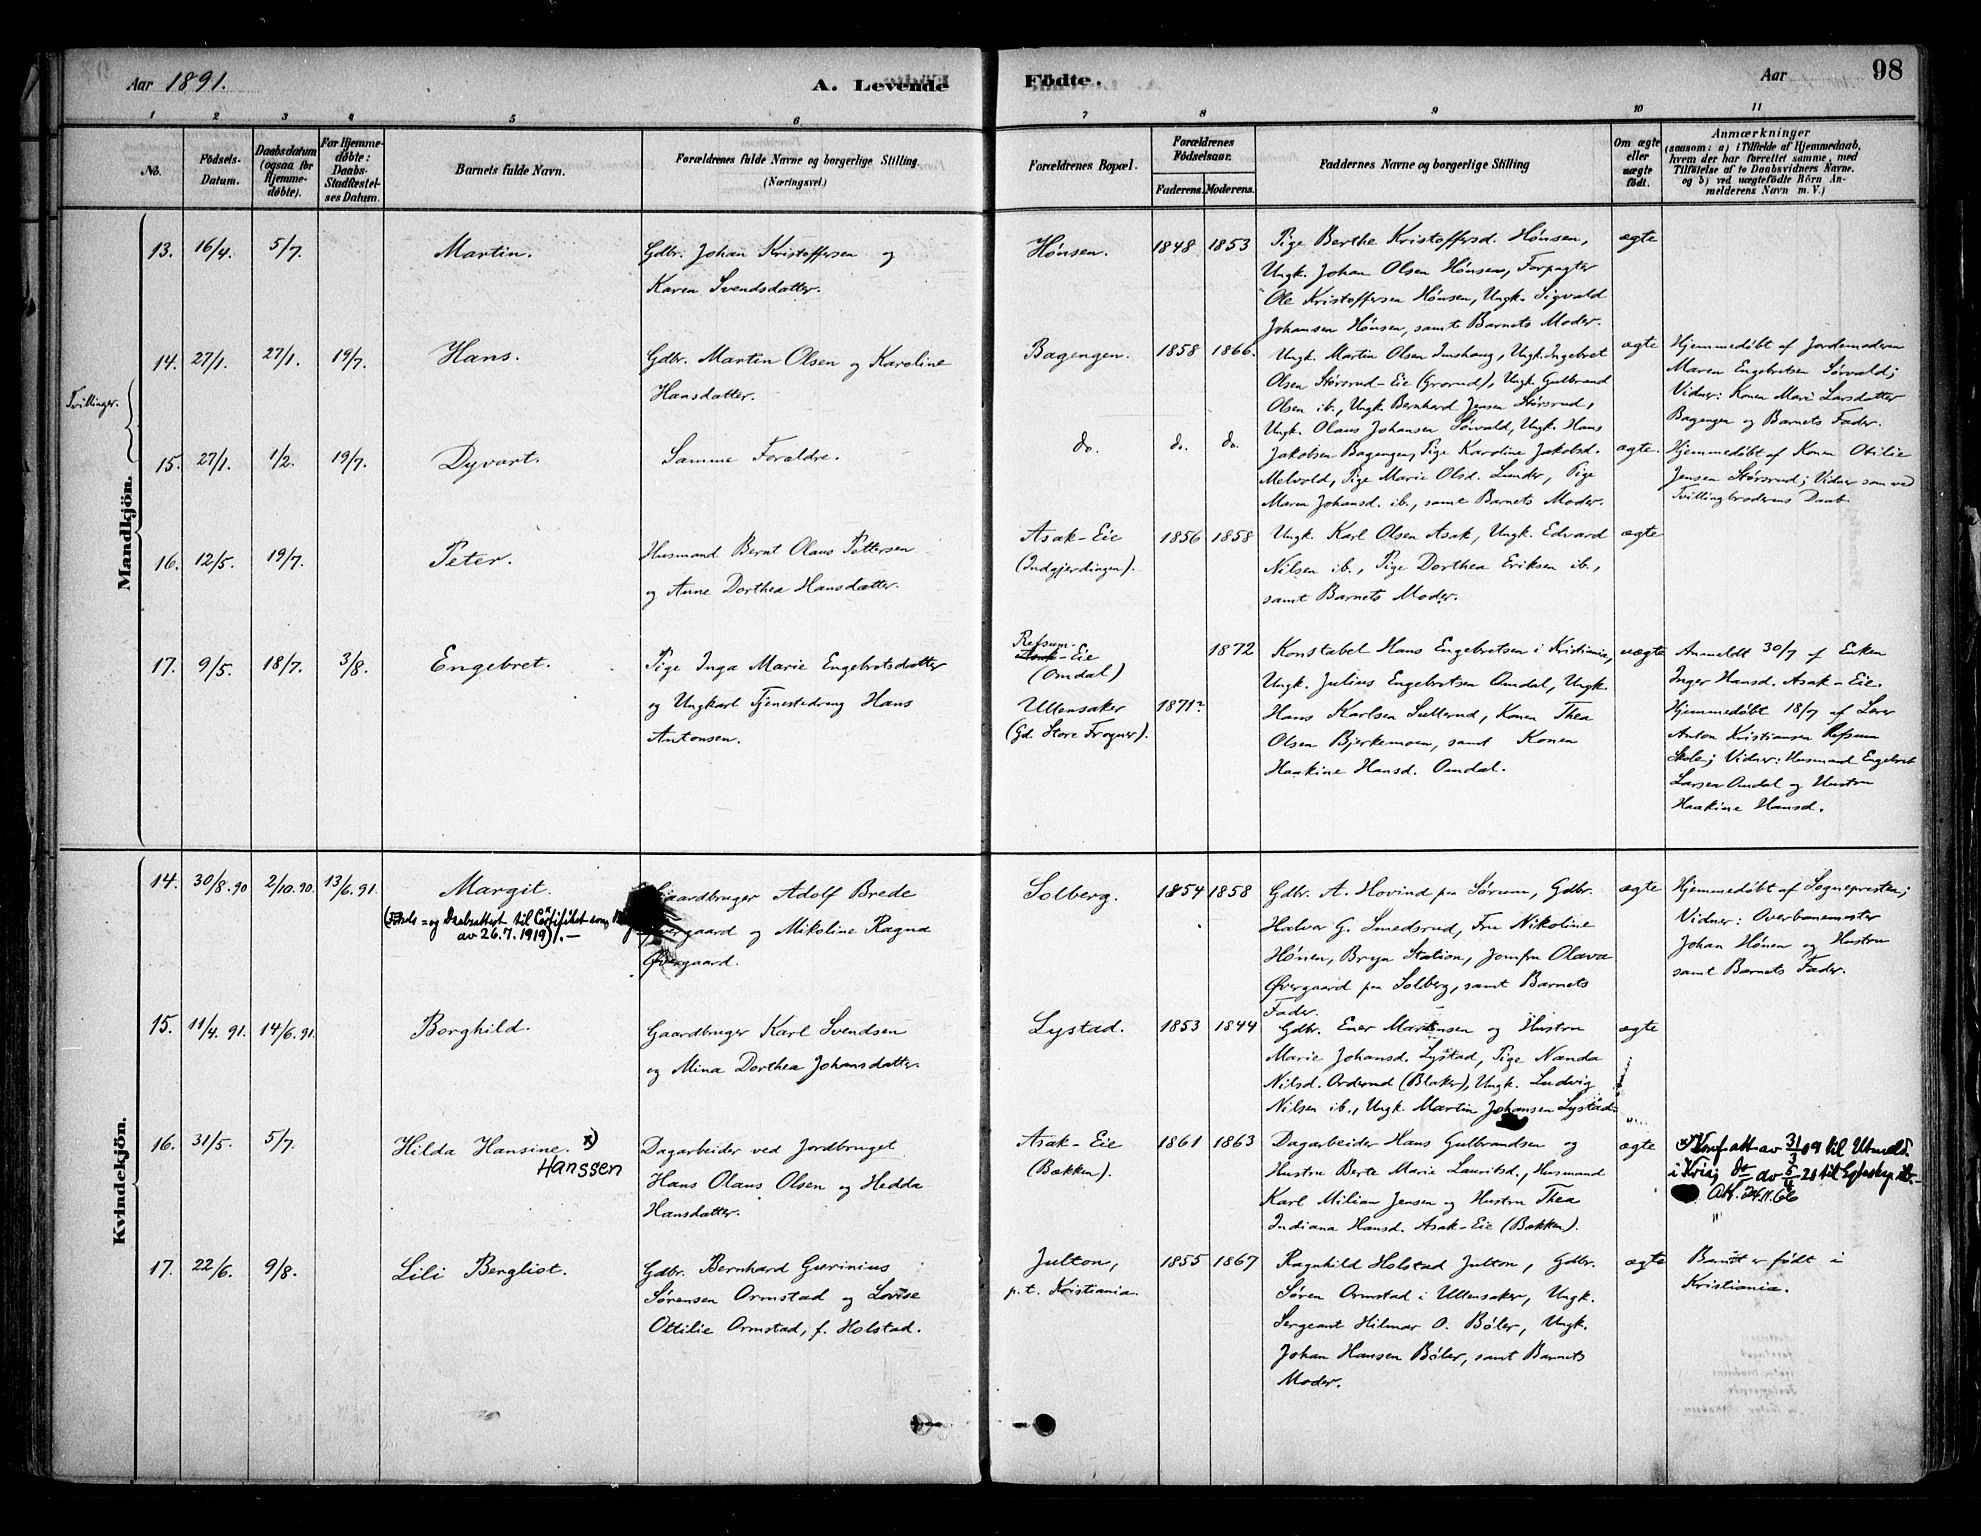 Aar 1891.
A. Levende
Födte.
Aar
98
1 2 3 4 5 6 7 8 9 10 11
No.
Födsels-Datum.
Daabsdatum (ogsaa for Hjemmedöbte).
For Hjemmedöbte: Daabs-Stadfæstelses Datum.
Barnets fulde Navn.
Forældrenes fulde Navne og borgerlige Stilling.
(Næringsvei.)
Forældrenes Bopæl.
Forældrenes Födselsaar.
Faderens. Moderens.
Faddernes Navne og borgerlige Stilling
Om ægte eller uægte födt.
Anmærkninger
(saasom: a) i Tilfælde af Hjemmedaab, hvem der har forrettet samme, med Tilföielse af to Daabsvidners Navne. og b) ved uægtefödte Börn Anmelderens Navn m. V.)
Mandkjön.
13. 16/4. 5/7. Martin.
Gdbr. Johan Kristoffersen og
Karen Svendsdatter.
Hónsen. 1848 1853
Pige Berthe Kristoffersd. Hónsen,
Ungk. Johan Olsen Hónsen, Forpagter
Ole Kristoffersen Hónsen, Ungk. Sigvald
Johansen Hónsen, samt Barnets Moder.
ægte
Tvillinger.
14. 27/1. 27/1. 19/7. Hans.
Gdbr. Martin Olsen og Karoline
Hansdatter.
Bagengen. 1858 1866.
Ungk. Martin Olsen Imshaug, Ungk. Ingebret
Olsen Störsrud-Eie (Grorud), Ungk. Gulbrand
Olsen ib., Ungk. Bernhard Jensen Störsrud,
Ungk. Olaus Johansen Sörvald, Ungk. Hans
Jakobsen Bagengen, Pige Karoline Jakobsd.
Melvold, Pige Marie Olsd. Lunder, Pige
Maren Johansd. ib., samt Barnets Moder.
ægte
Hjemmedöbt af Jordemoderen
Maren Engebretsen Sörvald;
Vidner: Konen Mari Larsdatter
Bagengen og Barnets Fader.
15. 27/1. 1/2. 19/7. Dyvart.
Samme Forældre.
do. do. do.
ægte.
Hjemmedöbt af Konen Otilie
Jensen Störsrud; Vidner som ved
Tvillingbroderens Daab
16. 12/5. 19/7. Peter.
Husmand Bernt Olaus Pettersen
og Anne Dorthea Hansdatter.
Asak-Eie
(Indgjerdingen).
1856 1858
Ungk. Karl Olsen Asak, Ungk. Edvard
Nilsen ib., Pige Dorthea Eriksen ib.,
samt Barnets Moder.
ægte
17. 9/5. 18/7. 3/8. Engebret.
Pige Inga Marie Engebretsdatter
og Ungkarl Tjenestedreng Hans
Antonsen.
Refsum-
Asak-Eie
(Omdal)
Ullensaker
(Gd. Store Frogner).
1872
1871?
Konstabel Hans Engebretsen i Kristiania,
Ungk. Julius Engebretsen Omdal, Ungk.
Hans Karlsen Sutterud, Konen Thea
Olsen Bjerkemoen, samt Konen
Haakine Hansd. Omdal.
uægte
Anmeldt 30/7 af Enken
Inger Hansd. Asak-Eie.
Hjemmedöbt 18/7 af Lærer
Anton Kristiansen Refsum
Skole; Vidner: Husmand Engebret
Larsen Omdal og Hustru
Haakine Hansd.
Kvindekjön.
14. 30/8.90 2/10.90. 13/6.91. Margit.
(Föds= og Daabsattest til Certifikat
av 26.7.1919).-
Gaardbruger Adolf Brede
Övergaard og Mikoline Ragna
Övergaard.
Solberg. 1854 1858
Gdbr. A. Hovind paa Sörum, Gdbr.
Halvor G. Smedsrud, Fru Nikoline
Hönen, Bryn Station, Jomfru Olava
Övergaard paa Solberg, samt Barnets
Fader.
ægte
Hjemmedöbt af Sognepresten;
Vidner: Overbanemester
Johan Hönen og Hustru
samt Barnets Fader.
15. 11/4.91. 14/6.91. Borghild.
Gaardbruger Karl Svendsen
og Mina Dorthea Johansdatter.
Lystad. 1853 1844
Gdbr. Ener Martinsen og Hustru
Marie Johansd. Lystad, Pige Nanda
Nilsd. Orderud (Blaker), Ungk. Ludvig
Nilsen ib., Ungk. Martin Johansen Lystad.
ægte
16. 31/5. 5/7. Hilda Hansine. x)
Hanssen
Dagarbeider ved Jordbruget
Hans Olaus Olsen og Hedda
Hansdatter.
Asak-Eie
(Bakken).
1861 1863
Dagarbeider Hans Gulbrandsen og
Hustru Berte Marie Lauritsd., Husmand
Karl Milian Jensen og Hustru Thea
Indiana Hansd. Asak-Eie (Bakken).
ægte
x) Konf att av 31/3 09 til Utmeld.
i Kria; do av 5/6-28 til Egteskap
24.11.66
17. 22/6. 9/8. Lili Bergliot.
Gdbr. Bernhard Guerinius
Sörensen Ormstad og Lovise
Ottilie Ormstad, f. Holstad.
Julton,
p.t. Kristiania.
1855 1867
Ragnhild Holstad Julton, Gdbr.
Sören Ormstad i Ullensaker, Ungk.
Sergeant Hilmar O. Böler, Ungk.
Johan Hansen Böler, samt Barnets
Moder.
ægte
Barnet er födt i
Kristiania.